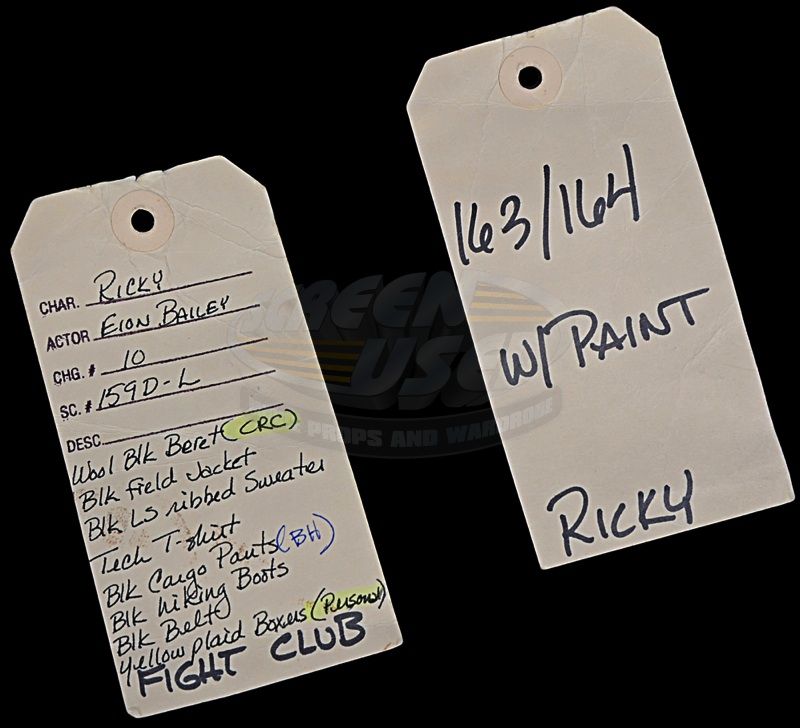 CHAR. RICKY
ACTOR EION BAILEY
CHG. # 10
SC. # 159D-L
DESC.
Wool Blk Beret (CRC)
Blk field Jacket
Blk LS ribbed Sweater
Tech T-shirt
Blk Cargo Pants (BH)
Blk hiking Boots
Blk Belt
Yellow plaid Boxers (Personal)
FIGHT CLUB
163/164
W/ PAINT
RICKY
SCREEN
USED
PROPS AND WARDROBE